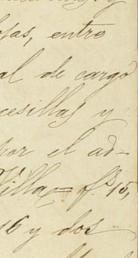 sas, entre
al de cargo
cesillas y
por el ad-
Villa,= fs. 15,
16 y dos